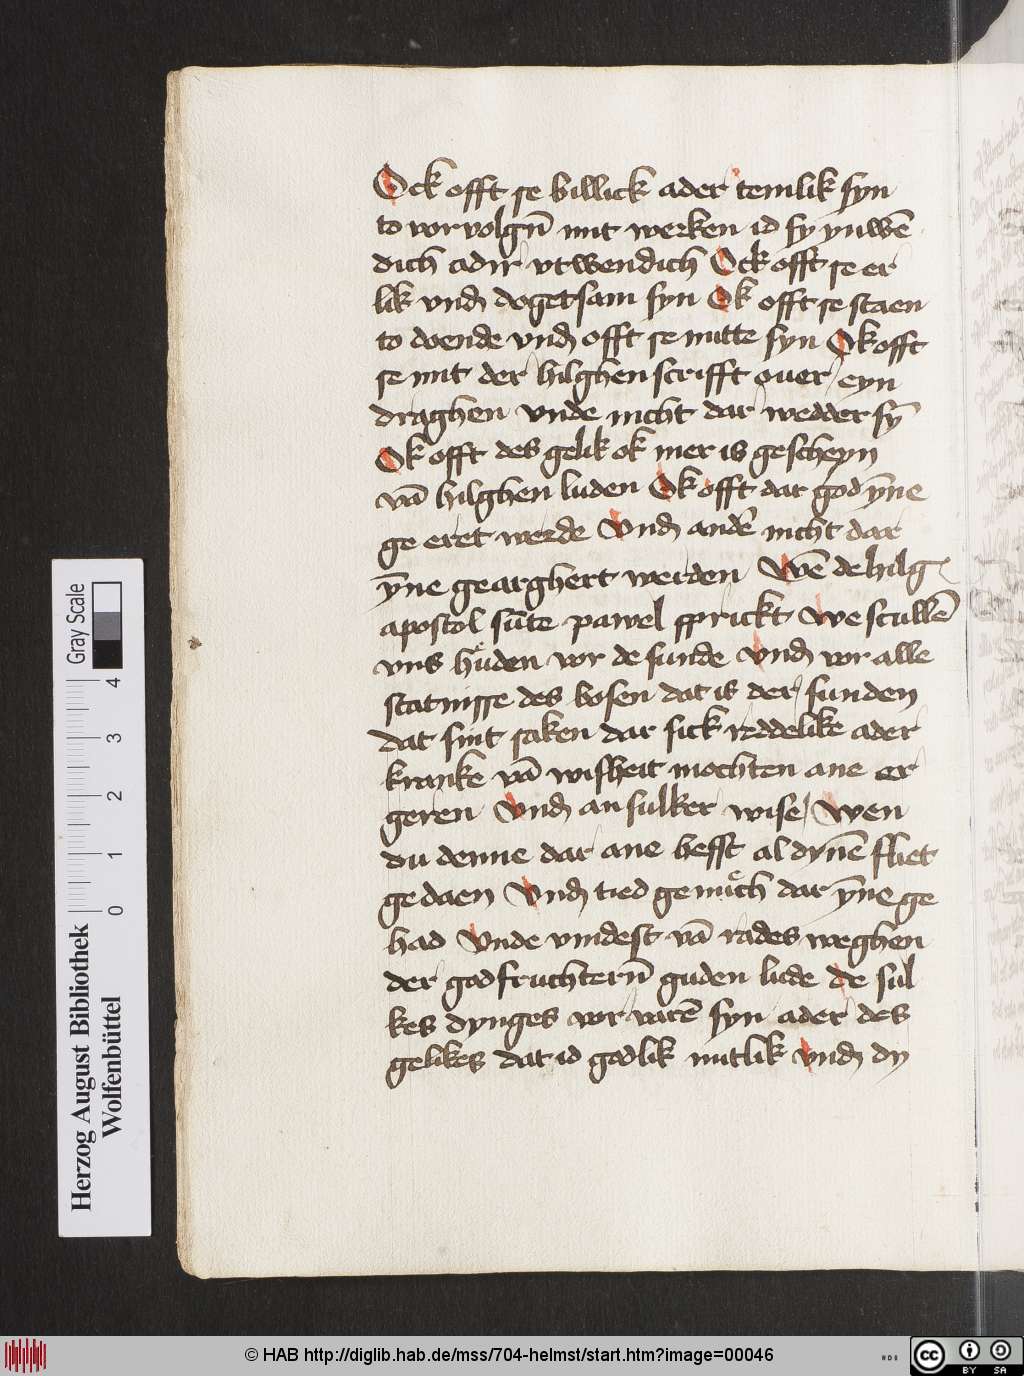 Ock offt se billick ader temlik syn
to vorvolgn̄ mit werken id sy ynwē
dich adir vtwendich Ock offt se er
lik vnd dogetsam syn Ok offt se staen
to doende vnd offt se nutte syn Ok offt
se mit der hilghen scrifft ouer eyn
draghen vnde nicht dar wedder sȳ
Ok offt des gelik ok mer is gescheyn
vā hilghen luden Ok offt dar god ȳne
ge eret werde Vnd andē nicht dar
ȳne gearghert werden Wē de hilg
apostol sūte pawel sprickt We scullē
vns hůden vor de sunde vnd vor alle
statnisse des bosen dat is der sunden
dat sint saken dar sick reddelike ader
kranke vā wisheit mochten ane er
geren Vnd an sulker wise / Wen
du denne dar ane hefft al dynē fliet
gedaen Vnd tied genůch dar ȳne ge
had Vnde vmdest vā rades weghen
der godfruchtern̄ guden lude de sul
kes dynges vorvarē syn ader des
gelikes dat id godlik nutlik vnd dy
Gray Scale
4
3
2
1
0
Herzog August Bibliothek
Wolfenbüttel
© HAB http://diglib.hab.de/mss/704-helmst/start.htm?image=00046
HAB
cc BY SA